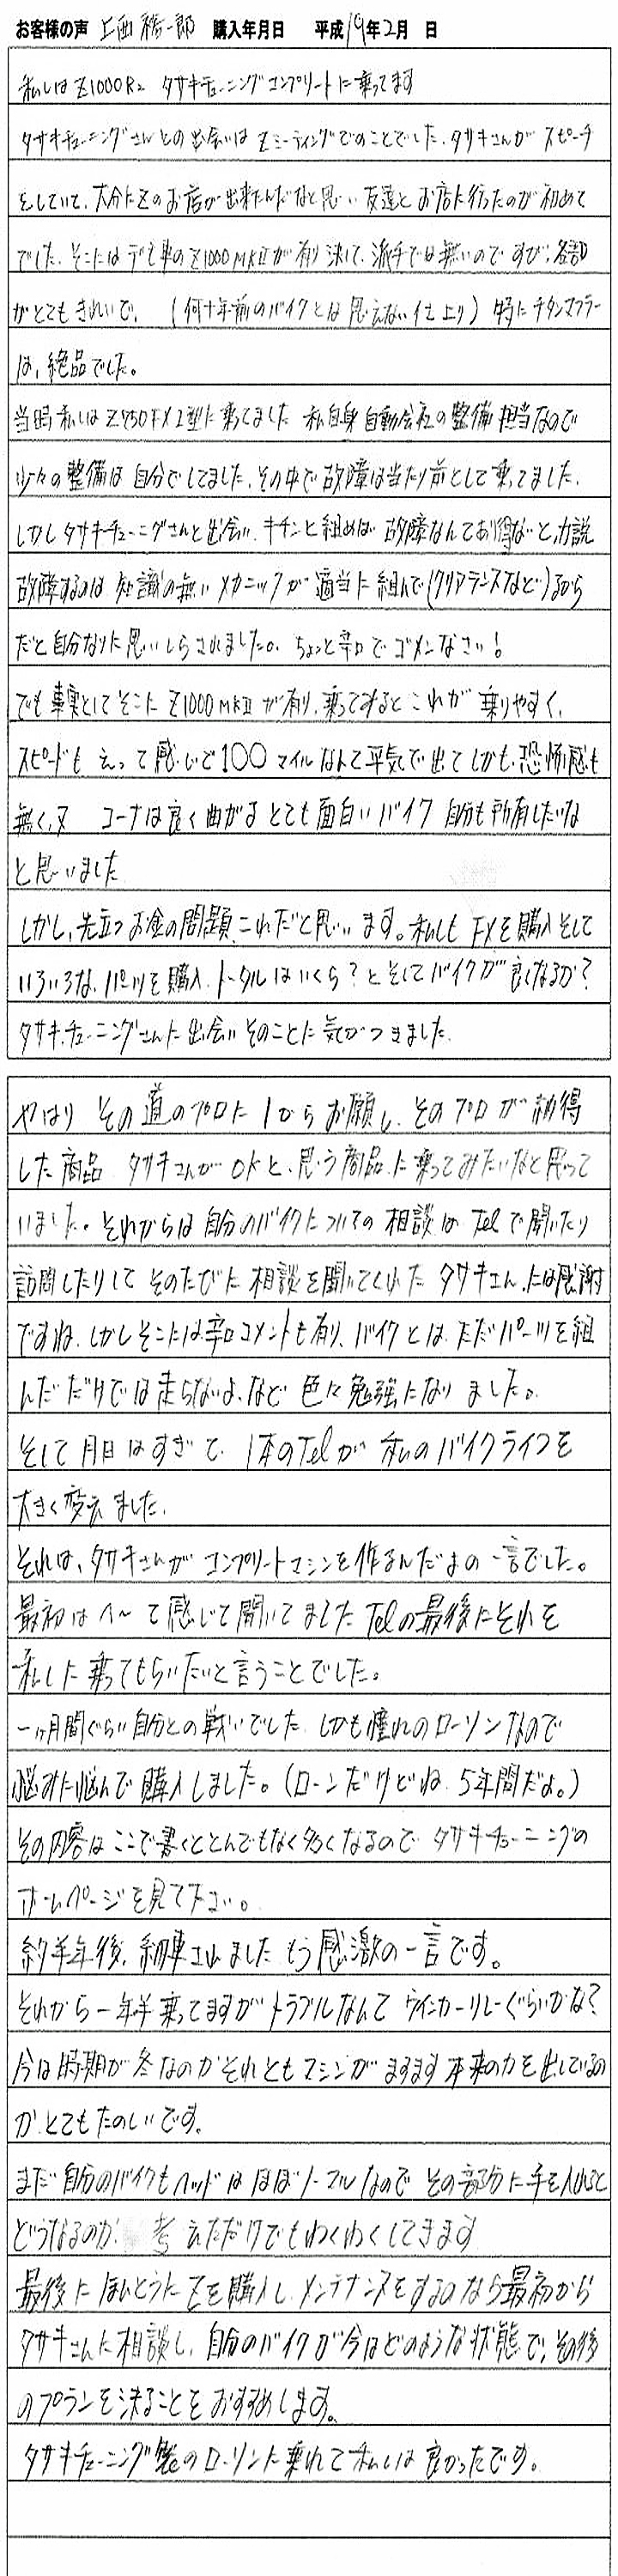 お客様の声 上西 一郎 購入年月日 平成19年2月 日
私しはZ1000R2 タサキチューニングコンプリートに乗ってます
タサキチューニングさんとの出会いはZミーティングでのことでした、タサキさんがスピーチ
をしていて、大分にZのお店が出来たんだなと思い 友達とお店に行ったのが初めて
でした、そこにはデモ車のZ1000MKⅡが有り決して、派手では無いのですが、各部
がとてもきれいで、(何十年前のバイクとは思えない仕上り)特にチタンマフラー
は、絶品でした。
当時私しはZ750FX1型に乗ってました 私自身自動会社の整備担当なので
少々の整備は自分でしてました、その中で故障は当たり前として乗ってました、
しかしタサキチューニグさんと出会い、キチンと組めば故障なんてあり得ないと力説
故障するのは知識の無いメカニックが適当に組んで(クリアランスなど)るから
だと自分なりに思いしらされました。ちょっと辛口でゴメンなさい!
でも事実としてそこにZ1000MKⅡが有り、乗ってみるとこれが乗りやすく、
スピードもえって感じで100マイルなんて平気で出てしかも恐怖感も
無く、又 コーナは良く曲がるとても面白いバイク 自分も所有したいな
と思いました
しかし、先立つお金の問題、これだと思います。私しもFXを購入そして
いろいろな、パーツを購入、トータルはいくら?とそしてバイクが良くなるか?
タサキ.チューニングさんに出会いそのことに気がつきました、
やはり その道のプロに1からお願し、そのプロが納得
した商品 タサキさんがOKと、思う商品、に乗ってみたいなと思って
いました。それからは自分のバイクについての相談はTelで聞いたり
訪問したりして そのたびに相談を聞いてくれたタサキさん、には感謝
ですね、しかしそこには辛口コメントも有り、バイクとは、ただパーツを組
んだだけでは走らないよ、など 色々勉強になりました。
そして月日はすぎて、1本のTelが私のバイクライフを
大きく変えました、
それは、タサキさんがコンプリートマシンを作るんだよの一言でした。
最初はへ～て感じて聞いてましたTelの最後にそれを
私しに乗ってもらいたいと言うことでした。
一ヶ月間ぐらい自分との戦いでした しかも憧れのローソンなので
悩みに悩んで購入しました。(ローンだけどね 5年間だよ。)
その内容はここで書くととんでもなく多くなるので タサキチューニングの
ホームページを見て下さい。
約半年後、納車されました もう感激の一言です。
それから一年半乗ってますがトラブルなんて ウインカーリレーぐらいかな?
今は時期が冬なのかそれともマシンがますます本来の力を出しているの
か、とてもたのしいです。
まだ自分のバイクもヘッドはほぼノーマルなので その部分に手を入れると
どうなるのか 考えただけでもわくわくしてきます
最後にほんとうにZを購入し、メンテナンスをするのなら最初から
タサキさんに相談し、自分のバイクが今はどのような状態で、その後
のプランを決ることをおすすめします。
タサキチューニング製のローソンに乗れて私しは良かったです。